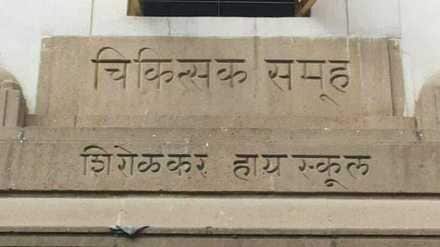 चिकित्सक समूह
शिरोळकर हाय स्कूल